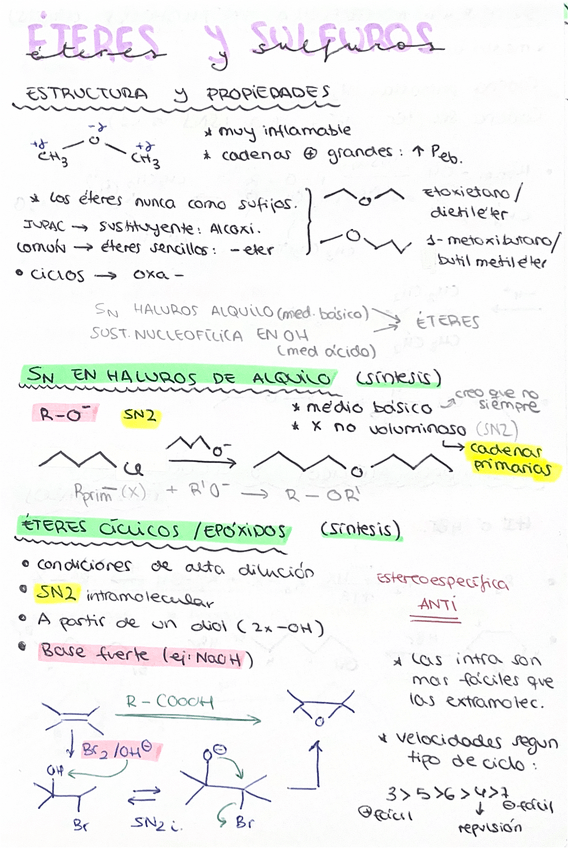 ÉTERES Y SULFUROS
éteres y sulfuros
ESTRUCTURA Y PROPIEDADES
-δ
+δ O +δ
CH3 CH3
* muy inflamable
* cadenas ⊕ grandes: ↑ Peb.
* Los éteres nunca como sufijos.
IUPAC → sustituyente: Alcoxi.
común → éteres sencillos: -eter
• ciclos → oxa-
O
Etoxietano/
dietiléter
O
1-metoxibutano/
butil metiléter
SN HALUROS ALQUILO (med. básico)
SUST. NUCLEOFÍLICA EN OH
(med ácido)
→ ÉTERES
SN EN HALUROS DE ALQUILO (síntesis)
R-O⁻ SN2
* medio básico → creo que no siempre
* X no voluminoso (SN2)
↳ cadenas
primarias
Cl O⁻ → O
Rprim-(X) + R'O⁻ → R-OR'
ÉTERES CÍCLICOS/EPÓXIDOS (síntesis)
• condiciones de alta dilución
• SN2 intramolecular
• A partir de un diol (2x-OH)
• Base fuerte (ej: NaOH)
Estereoespecífica
ANTI
* Las intra son
mas fáciles que
las extramolec.
R-COOOH
O
↓ Br2/OH⊖
OH
Br
⇌
SN2 i.
O⊖
Br
* velocidades segun
tipo de ciclo:
3>5>6>4>7
⊕ fácil ↓ ⊖ fácil
repulsión